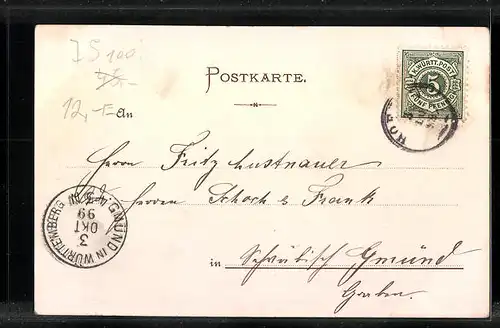 JS 100.
45.-
12,-E
POSTKARTE.
K. WÜRTT. POST
5
FÜNF PFENNIG
An
Herrn Fritz Lustnauer
Herren Schoch & Frank
in Schwäbisch Gmünd
Graben.
GMÜND IN WÜRTTEMBERG
3
OKT
99